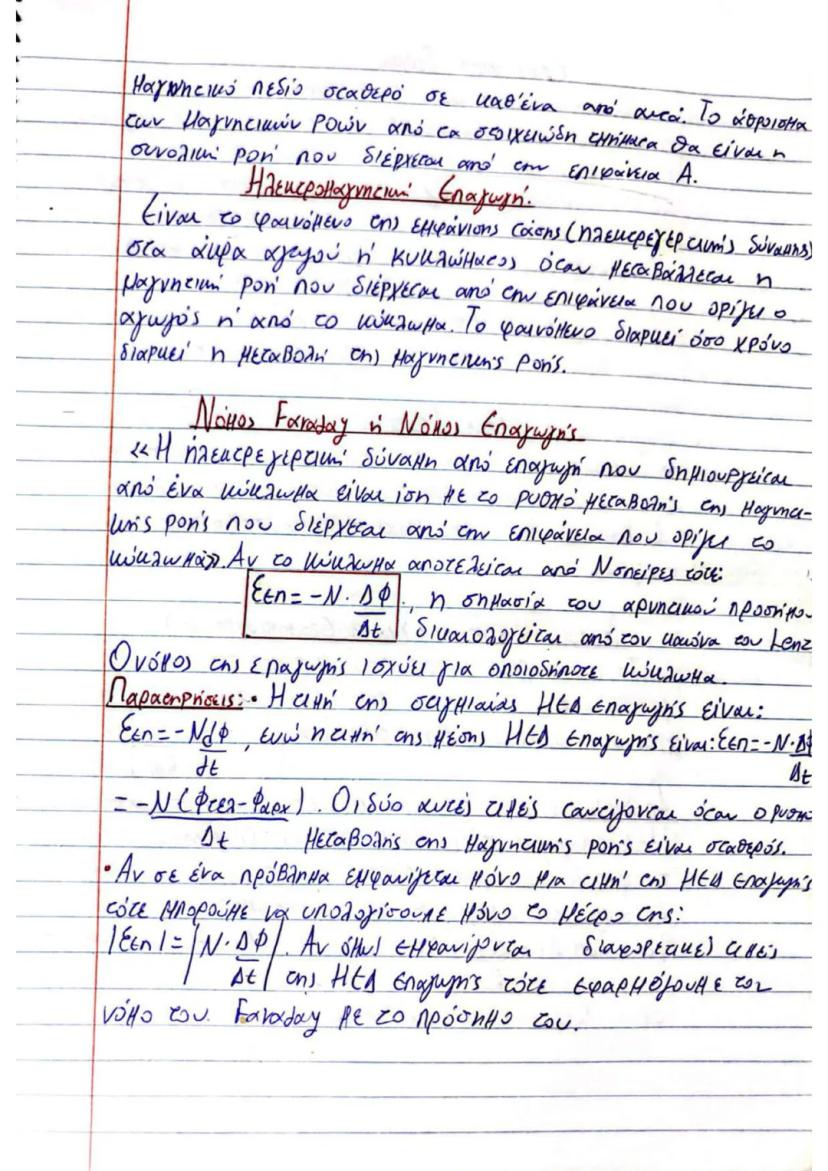 Μαγνητικό πεδίο σταθερό σε καθ'ένα από αυτά. Το άθροισμα
των Μαγνητικών Ροών από τα στοιχειώδη τμήματα θα είναι η
συνολική ροή που διέρχεται από την επιφάνεια Α.
Ηλεκτρομαγνητική Επαγωγή.
Είναι το φαινόμενο της εμφάνισης τάσης (ηλεκτρεγερτικής δύναμης)
στα άκρα αγωγού ή κυκλώματος όταν μεταβάλλεται η
μαγνητική ροή που διέρχεται από την επιφάνεια που ορίζει ο
αγωγός ή από το κύκλωμα. Το φαινόμενο διαρκεί όσο χρόνο
διαρκεί η μεταβολή της μαγνητικής ροής.
Νόμος Faraday ή Νόμος Επαγωγής
«Η ηλεκτρεγερτική δύναμη από επαγωγή που δημιουργείται
από ένα κύκλωμα είναι ίση με το ρυθμό μεταβολής της μαγνητι-
κής ροής που διέρχεται από την επιφάνεια που ορίζει το
κύκλωμα». Αν το κύκλωμα αποτελείται από Ν σπείρες τότε:
Εεπ = -Ν · ΔΦ/Δt , η σημασία του αρνητικού προσήμου
δικαιολογείται από τον κανόνα του Lenz
Ο νόμος της επαγωγής ισχύει για οποιοδήποτε κύκλωμα.
Παρατηρήσεις: • Η τιμή της στιγμιαίας ΗΕΔ επαγωγής είναι:
Εεπ = -Ν dφ/dt , ενώ η τιμή της μέσης ΗΕΔ επαγωγής είναι: Εεπ = -Ν · ΔΦ/Δt
= -Ν (Φτελ - Φαρχ)/Δt . Οι δύο αυτές τιμές ταυτίζονται όταν ο ρυθμ
μεταβολής της μαγνητικής ροής είναι σταθερός.
• Αν σε ένα πρόβλημα εμφανίζεται μόνο μια τιμή της ΗΕΔ επαγωγής
τότε μπορούμε να υπολογίσουμε μόνο το μέτρο της:
|Εεπ| = |Ν · ΔΦ/Δt| . Αν όμως εμφανίζονται διαφορετικές τιμές
της ΗΕΔ επαγωγής τότε εφαρμόζουμε τον
νόμο του Faraday με το πρόσημο του.